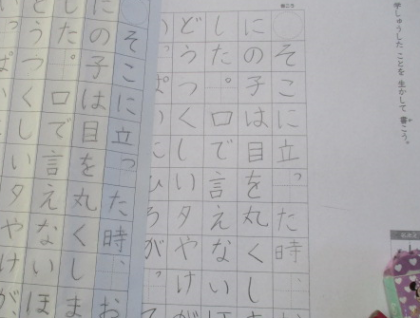 学しゅうした ことを 生かして 書こう。
そこに立った時、
にの子は目を丸くし
した。口で言えないほ
どうつくしい夕やけ
そこに立った時、お
にの子は目を丸くしま
した。口で言えないほ
どうつくしい夕やけが、